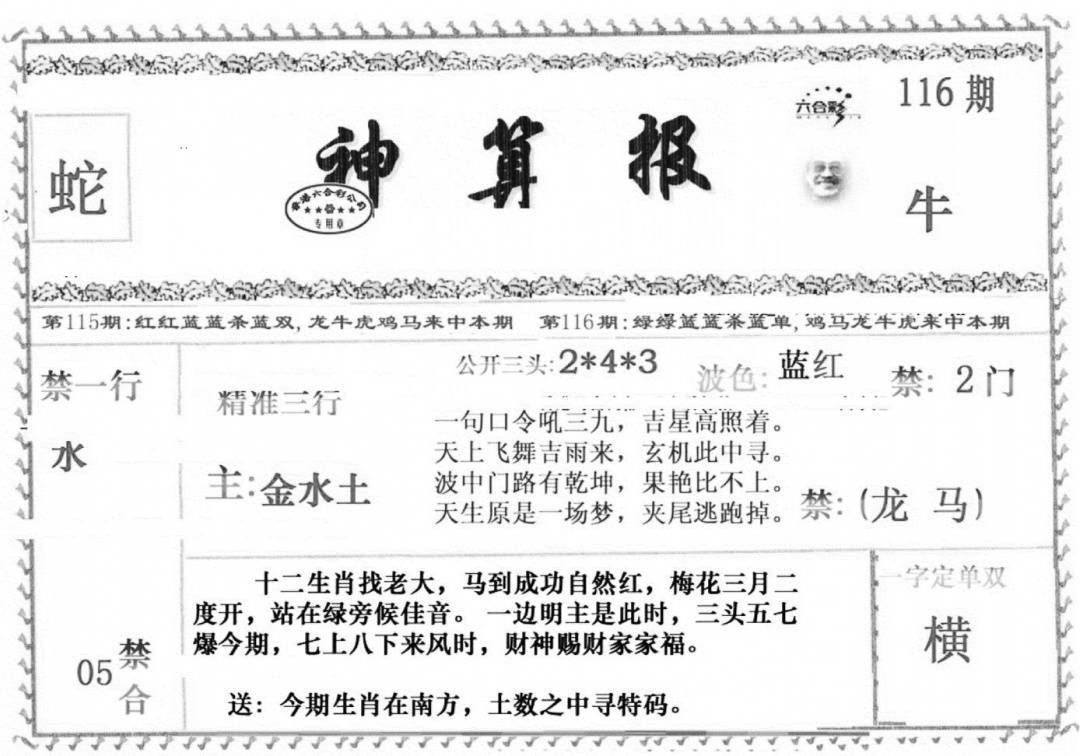 116期
六合彩
蛇
神算报
香港六合彩公司
专用章
牛
第115期:红红蓝蓝杀蓝双,龙牛虎鸡马来中本期
第116期:绿绿蓝蓝杀蓝单,鸡马龙牛虎来中本期
禁一行
水
精准三行
主:金水土
公开三头:2*4*3
波色:蓝红
禁:2门
一句口令吼三九，吉星高照着。
天上飞舞吉雨来，玄机此中寻。
波中门路有乾坤，果艳比不上。
天生原是一场梦，夹尾逃跑掉。
禁:(龙 马)
05禁合
十二生肖找老大，马到成功自然红，梅花三月二
度开，站在绿旁候佳音。一边明主是此时，三头五七
爆今期，七上八下来风时，财神赐财家家福。
送：今期生肖在南方，土数之中寻特码。
一字定单双
横